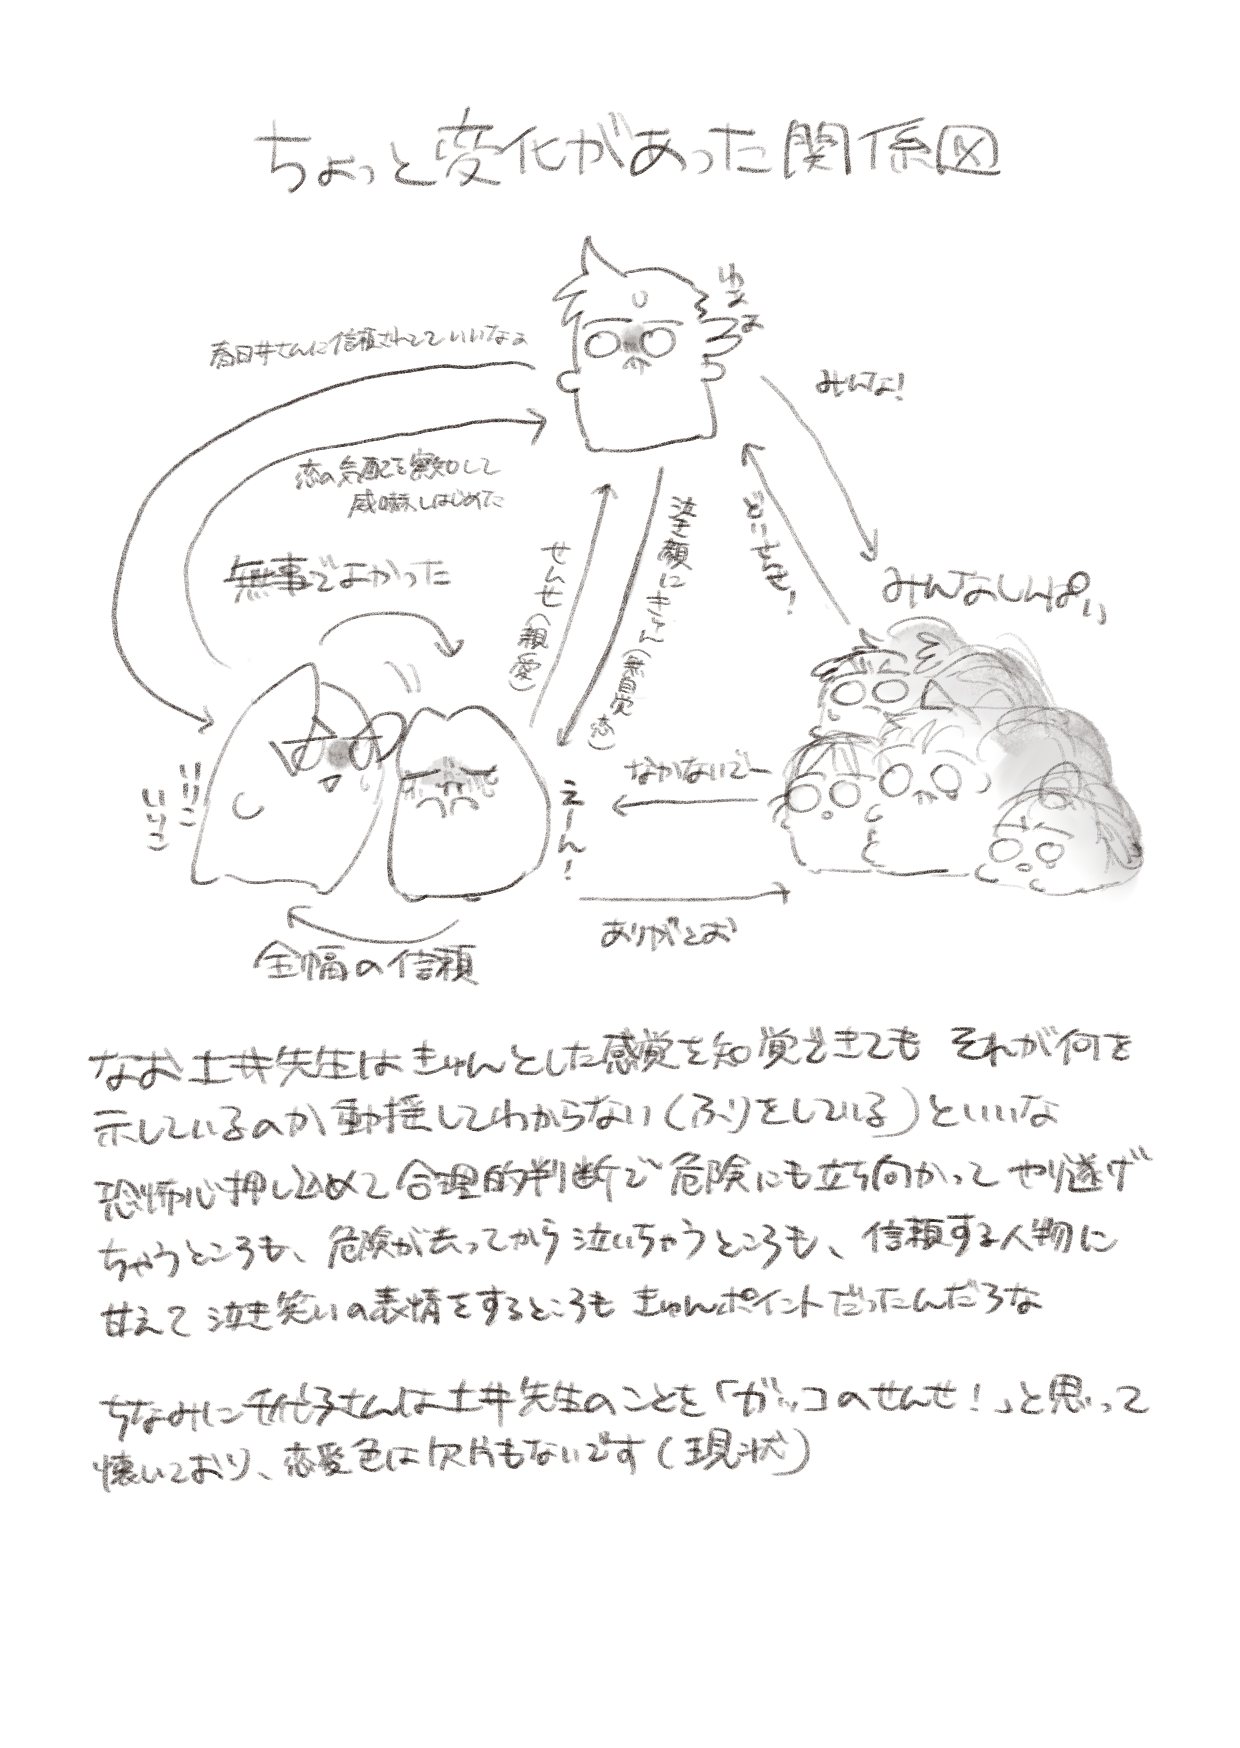 ちょっと変化があった関係図
春日井さんに信頼されてていいなぁ
みんな!
恋の気配を察知して
威嚇しはじめた
無事でよかった
せんせ(親愛)
泣き顔にきゅん(無自覚恋)
どいちせ!
みんなしんぱい
いいこ
いいこ
えーん!
なかないでー
ありがとお
全幅の信頼
なお土井先生はきゅんとした感覚を知覚できても それが何を
示しているのか動揺してわからない(ふりをしている)といいな
恐怖心押し込めて合理的判断で危険にも立ち向かって やり遂げ
ちゃうところも、危険が去ってから泣いちゃうところも、信頼する人物に
甘えて泣き笑いの表情をするところも きゅんポイントだったんだろな
ちなみに千代子さんは土井先生のことを「ガッコのせんせ!」と思って
懐いており、恋愛色は欠片もないです(現状)